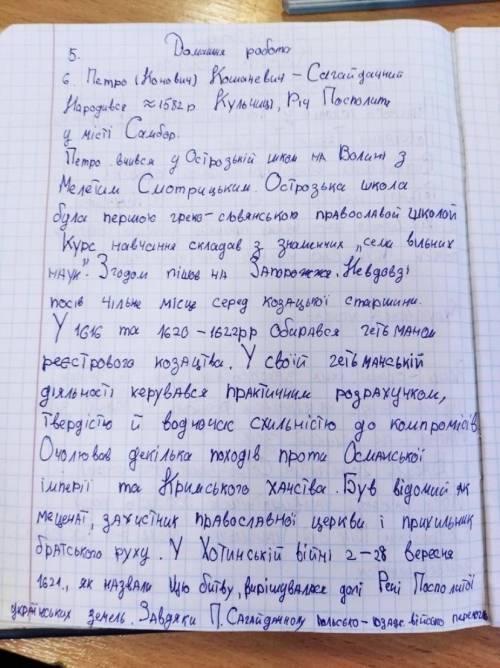 Домашня робота
5.
6. Петро (Конович) Конашевич-Сагайдачний
Народився ≈1582р. Кульчиці, Річ Посполита
у місті Самбор.
Петро вчився у Острозькій школі на Волині з
Мелетієм Смотрицьким. Острозька школа
була першою греко-словянською православой школой
Курс навчання складав з знаменних „семи вільних
наук". Згодом пішов на Запорожжя. Невдовзі
посів чільне місце серед козацької старшини.
У 1616 та 1620-1622рр обирався гетьманом
реєстрового козацтва. У своїй гетьманській
діяльності керувався практичним розрахунком,
твердістю й водночас схильністю до компромісів
Очолював декілька походів проти Османської
імперії та Кримського ханства. Був відомий як
меценат, захистник православної церкви і прихильник
братського руху. У Хотинській війні 2-28 вересня
1621., як назвали цю битву, вирішувалася долі Речі Посполитої
українських земель. Завдяки П. Сагайдачному польсько-козацьке військо